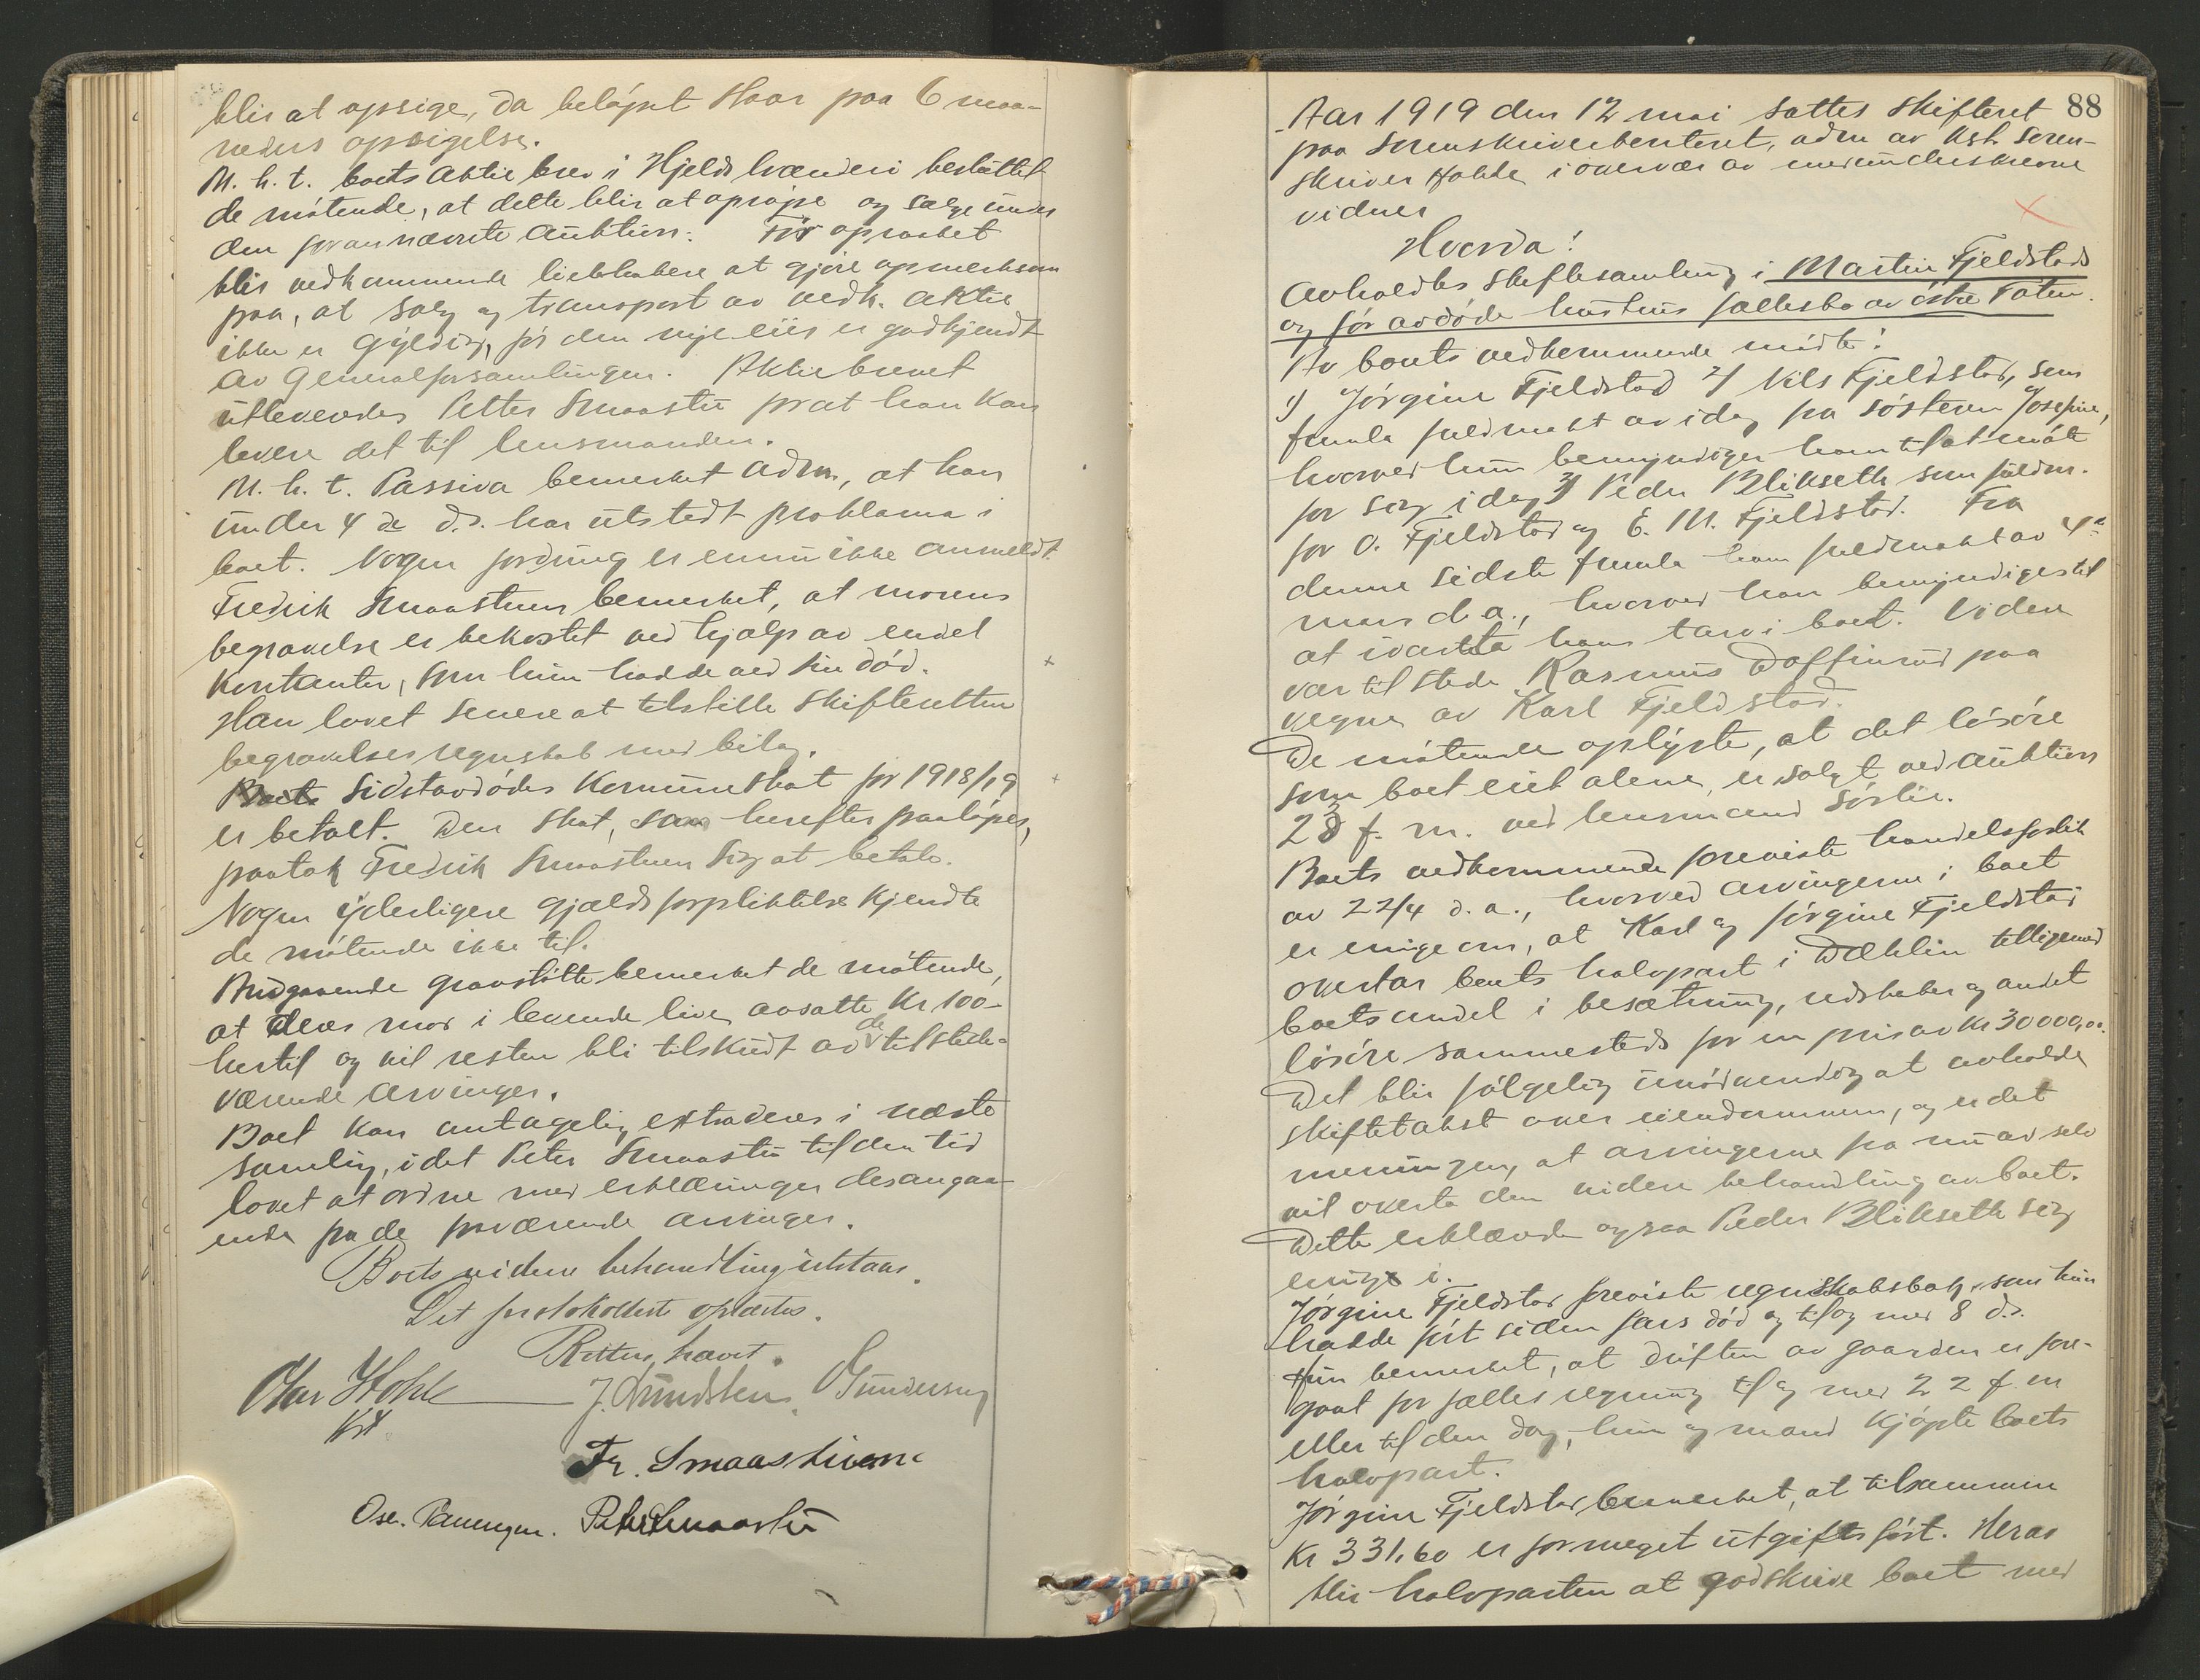 blir at opsige, da beløpet staar paa 6 maa-
neders opsigelse.
M. h. t. boets aktiebrev i Hjelds brænderi besluttet
de møtende, at dette blir at oprope og sælge under
den forannævnte auktion. Før opropet
blir vedkommende liebhabere at gjøre opmerksom
paa, at salg og transport av vedk. aktie
ikke er gyldig, før den nye eier er godkjendt
av generalforsamlingen. Aktiebrevet
utleveredes Petter Smaastu forat han kan
levere det til lensmanden.
M. h. t. Passiva bemerket adm., at han
under 4 de d.s. har utstedt proklama i
boet. Nogen fordring er ennu ikke anmeldt.
Fredrik Smaastuen bemerket, at morens
begravelse er bekostet ved hjælp av endel
kontanter, som hun hadde ved sin død.
Han lovet senere at tilstille skifteretten
begravelsesregnskab med bilag.
Boets Sidstavdødes kommuneskat for 1918/19
er betalt. Den skat, som herefter paaløper,
paatok Fredrik Smaastuen sig at betale.
Nogen yderligere gjældsforpliktelse kjendte
de møtende ikke til.
Angaaende gravstøtte bemerket de møtende,
at deres mor i levende live avsatte Kr 100-
hertil og vil resten bli tilskudt av de tilstede-
værende arvinger.
Boet kan antagelig extraderes i næste
samling, idet Peter Smaastu til den tid
lovet at ordne med erklæringer desangaa-
ende fra de fraværende arvinger.
Boets videre behandling utstaar.
Det protokollerte oplæstes.
Retten hævet.
Olav Hokle J. Amundsen. O Gundersen
Kst.
Fr. Smaastuen
Osc. Peter Smaastu
88
Aar 1919 den 12 mai sattes skifteret
paa Sorenskriverkontoret, adm av kst. soren-
skriver Hokle i overvær av medunderskrevne
vidner
Hvorda!
Avholdtes skiftesamling i Martin Fjeldstads
og før avdøde hustrus fællesbo av østre Toten.
Av boets vedkommende mødte:
1) Jørgine Fjeldstad 2) Nils Fjeldstad, som
fremla fuldmakt av idag fra søsteren Josefine,
hvorved hun bemyndiger ham til at møte
for sig idag 3) Peder Blikseth som fuldm.
for O. Fjeldstad og E. M. Fjeldstad. Fra
denne sidste fremla han fuldmakt av 4de
mars d.a., hvorved han bemyndiges til
at ivareta hans tarv i boet. Videre
var tilstede Rasmus Doffinrud paa
vegne av Karl Fjeldstad.
De møtende oplyste, at det løsøre
som boet eiet alene, er solgt ved auktion
28 f. m. ved lensmand Sørlie.
Boets vedkommende foreviste handelsforlik
av 22/4 d.a., hvorved arvingerne i boet
er enige om, at Karl og Jørgine Fjeldstad
overtar boets halvpart i Dæhlin tilligemed
boets andel i besætning, redskaber og andet
løsøre sammesteds for en pris av Kr 30000,00.
Det blir følgelig unødvendig at avholde
skiftetakst over eiendommen, og er det
meningen, at arvingerne fra nu av selv
vil overta den videre behandling av boet.
Dette erklærede ogsaa Peder Blikseth sig
enig i.
Jørgine Fjeldstad foreviste regnskabsbok, som hun
hadde ført siden fars død og til og med 8 d.s.
Hun bemerket, at driften av gaarden er fore-
gaat for fælles regning til og med 22 f. m
eller til den dag, hun og mand kjøpte boets
halvpart.
Jørgine Fjeldstad bemerket, at tilsammen
Kr 331,60 er formeget utgiftsført. Herav
blir halvparten at godskrive boet med